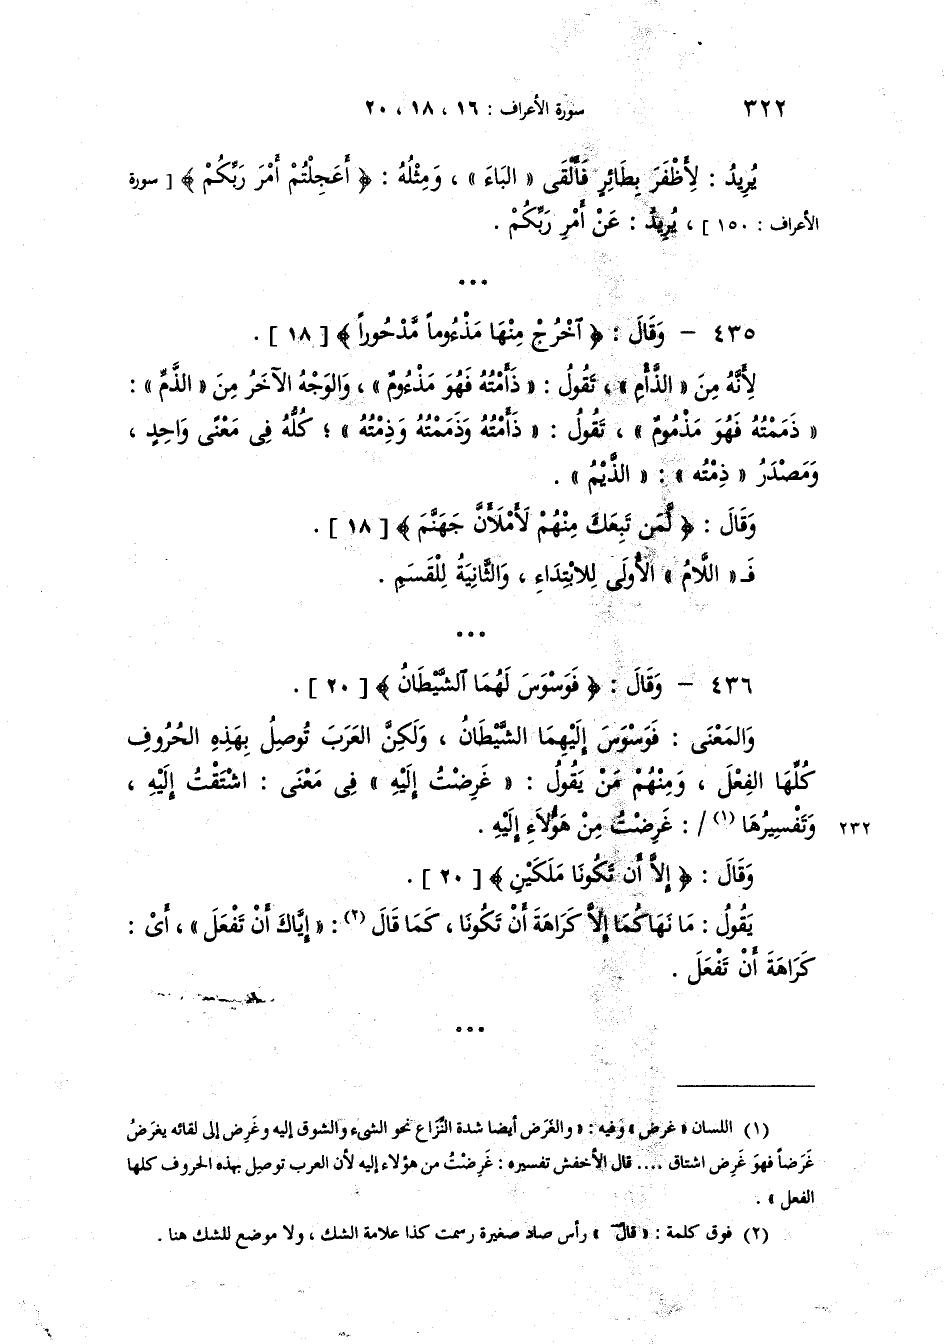 ٣٢٢ سورة الأعراف : ١٦ ، ١٨ ، ٢٠
يُرِيدُ : لِأَظْفَرَ بِطَائِرٍ فَأَلْقَى « البَاءَ » ، وَمِثْلُهُ : ﴿ أَعَجِلْتُمْ أَمْرَ رَبِّكُمْ ﴾ [ سورة
الأعراف : ١٥٠ ] ، يُرِيدُ : عَنْ أَمْرِ رَبِّكُمْ .
•••
٤٣٥ – وَقَالَ : ﴿ ٱخْرُجْ مِنْهَا مَذْءُوماً مَّدْحُوراً ﴾ [ ١٨ ] .
لِأَنَّهُ مِنَ « الذَّأْمِ » ، تَقُولُ : « ذَأَمْتُهُ فَهُوَ مَذْءُومٌ » ، وَالوَجْهُ الآخَرُ مِنَ « الذَّمِّ » :
« ذَمَمْتُهُ فَهُوَ مَذْمُومٌ » ، تَقُولُ : « ذَأَمْتُهُ وَذَمَمْتُهُ وَذِمْتُهُ » ؛ كُلُّهُ فِى مَعْنًى وَاحِدٍ ،
وَمَصْدَرُ « ذِمْتُه » : « الذَّيْمُ » .
وَقَالَ : ﴿ لَّمَن تَبِعَكَ مِنْهُمْ لَأَمْلَأَنَّ جَهَنَّمَ ﴾ [ ١٨ ] .
فَـ « اللَّامُ » الأُولَى لِلابْتِدَاءِ ، وَالثَّانِيَةُ لِلْقَسَمِ .
•••
٤٣٦ – وَقَالَ : ﴿ فَوَسْوَسَ لَهُمَا ٱلشَّيْطَانُ ﴾ [ ٢٠ ] .
وَالمَعْنَى : فَوَسْوَسَ إِلَيْهِمَا الشَّيْطَانُ ، وَلَكِنَّ العَرَبَ تُوصِلُ بِهَذِهِ الحُرُوفِ
كُلِّهَا الفِعْلَ ، وَمِنْهُمْ مَنْ يَقُولُ : « غَرِضْتُ إِلَيْهِ » فِى مَعْنَى : اشْتَقْتُ إِلَيْهِ ،
٢٣٢ وَتَفْسِيرُهَا (١) / : غَرِضْتُ مِنْ هَؤُلَاءِ إِلَيْهِ .
وَقَالَ : ﴿ إِلاَّ أَن تَكُونَا مَلَكَيْنِ ﴾ [ ٢٠ ] .
يَقُولُ : مَا نَهَاكُمَا إِلاَّ كَرَاهَةَ أَنْ تَكُونَا ، كَمَا قَالَ (٢) : « إِيَّاكَ أَنْ تَفْعَلَ » ، أَىْ :
كَرَاهَةَ أَنْ تَفْعَلَ .
•••
(١) اللسان « غرض » وفيه : « والغَرَض أيضا شدة النَّزَاع نحو الشىء والشوق إليه وغَرِض إلى لقائه يغرَضُ
غَرَضاً فهوَ غَرِض اشتاق .... قال الأخفش تفسيره : غَرِضْتُ من هؤلاء إليه لأن العرب توصيل بهذه الحروف كلها
الفعل » .
(٢) فوق كلمة : « قال » رأس صاد صغيرة رسمت كذا علامة الشك ، ولا موضع للشك هنا .